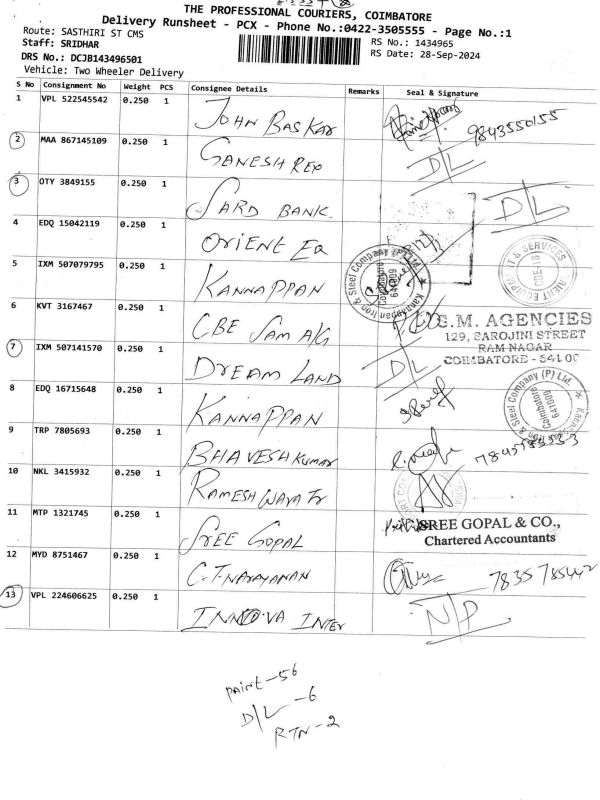 THE PROFESSIONAL COURIERS, COIMBATORE
Delivery Runsheet - PCX - Phone No.:0422-3505555 - Page No.:1
Route: SASTHIRI ST CMS
RS No.: 1434965
Staff: SRIDHAR
RS Date: 28-Sep-2024
DRS No.: DCJB143496501
Vehicle: Two Wheeler Delivery
S No Consignment No Weight PCS Consignee Details Remarks Seal & Signature
1 VPL 522545542 0.250 1 JOHN BASKAR 9843550155
2 MAA 867145109 0.250 1 GANESH REP D/L
3 OTY 3849155 0.250 1 SARD BANK. D/L
4 EDQ 15042119 0.250 1 ORIENT EQ
5 IXM 507079795 0.250 1 KANNAPPAN
Kannappan Iron & Steel Company (P) Ltd.
Coimbatore
641009
6 KVT 3167467 0.250 1 CBE SAM A/G
G.M. AGENCIES
129, SAROJINI STREET
RAM NAGAR
COIMBATORE - 641 00
7 IXM 507141570 0.250 1 DREAM LAND D/L
8 EDQ 16715648 0.250 1 KANNAPPAN
Kannappan Iron & Steel Company (P) Ltd.
Coimbatore
641009
9 TRP 7805693 0.250 1 BHAVESH KUMAR
10 NKL 3415932 0.250 1 RAMESH
11 MTP 1321745 0.250 1 SREE GOPAL
SREE GOPAL & CO.,
Chartered Accountants
12 MYD 8751467 0.250 1 C.T.NARAYANAN
13 VPL 224606625 0.250 1 INNOVA INTER N/P
Paint-56
D/L-6
RTN-2